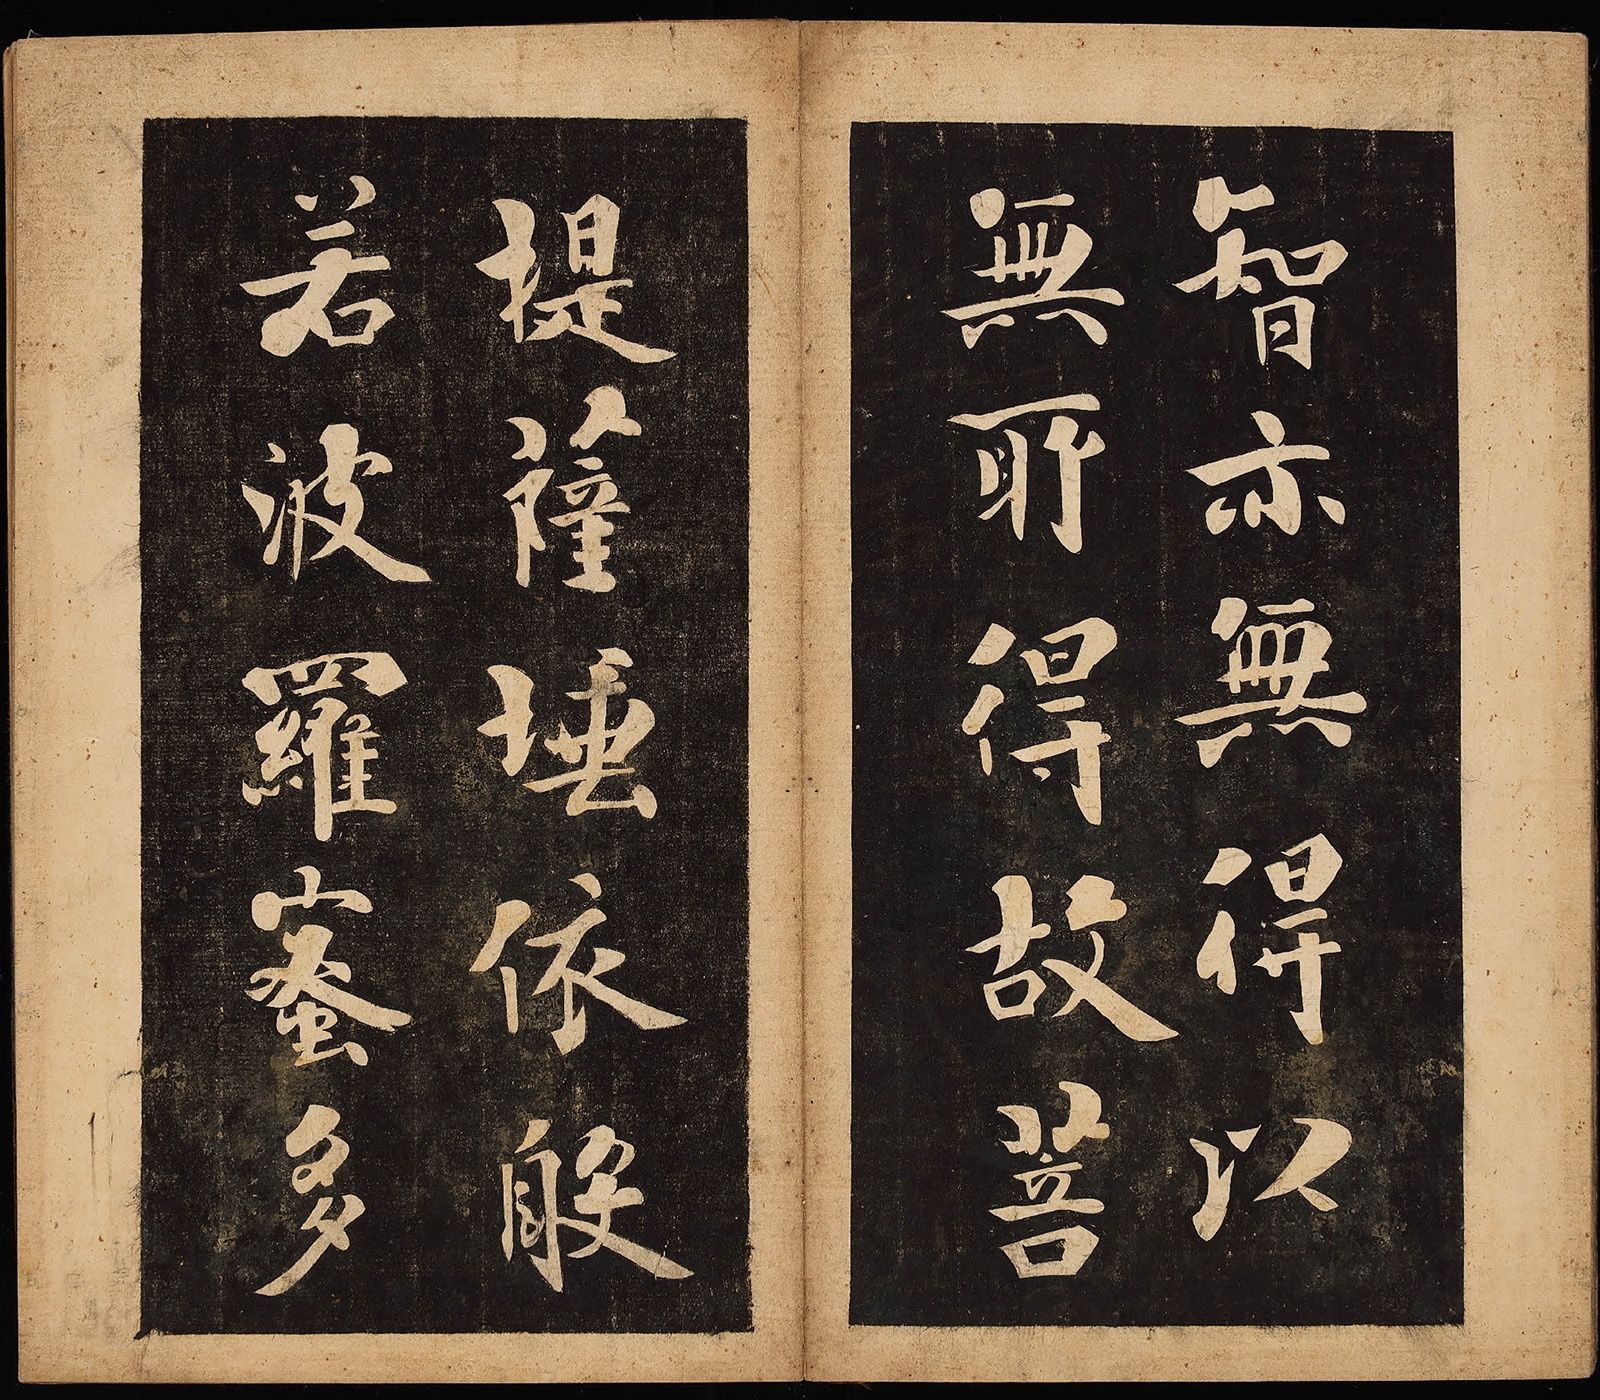 智亦無得以
無所得故菩
提薩埵依般
若波羅蜜多